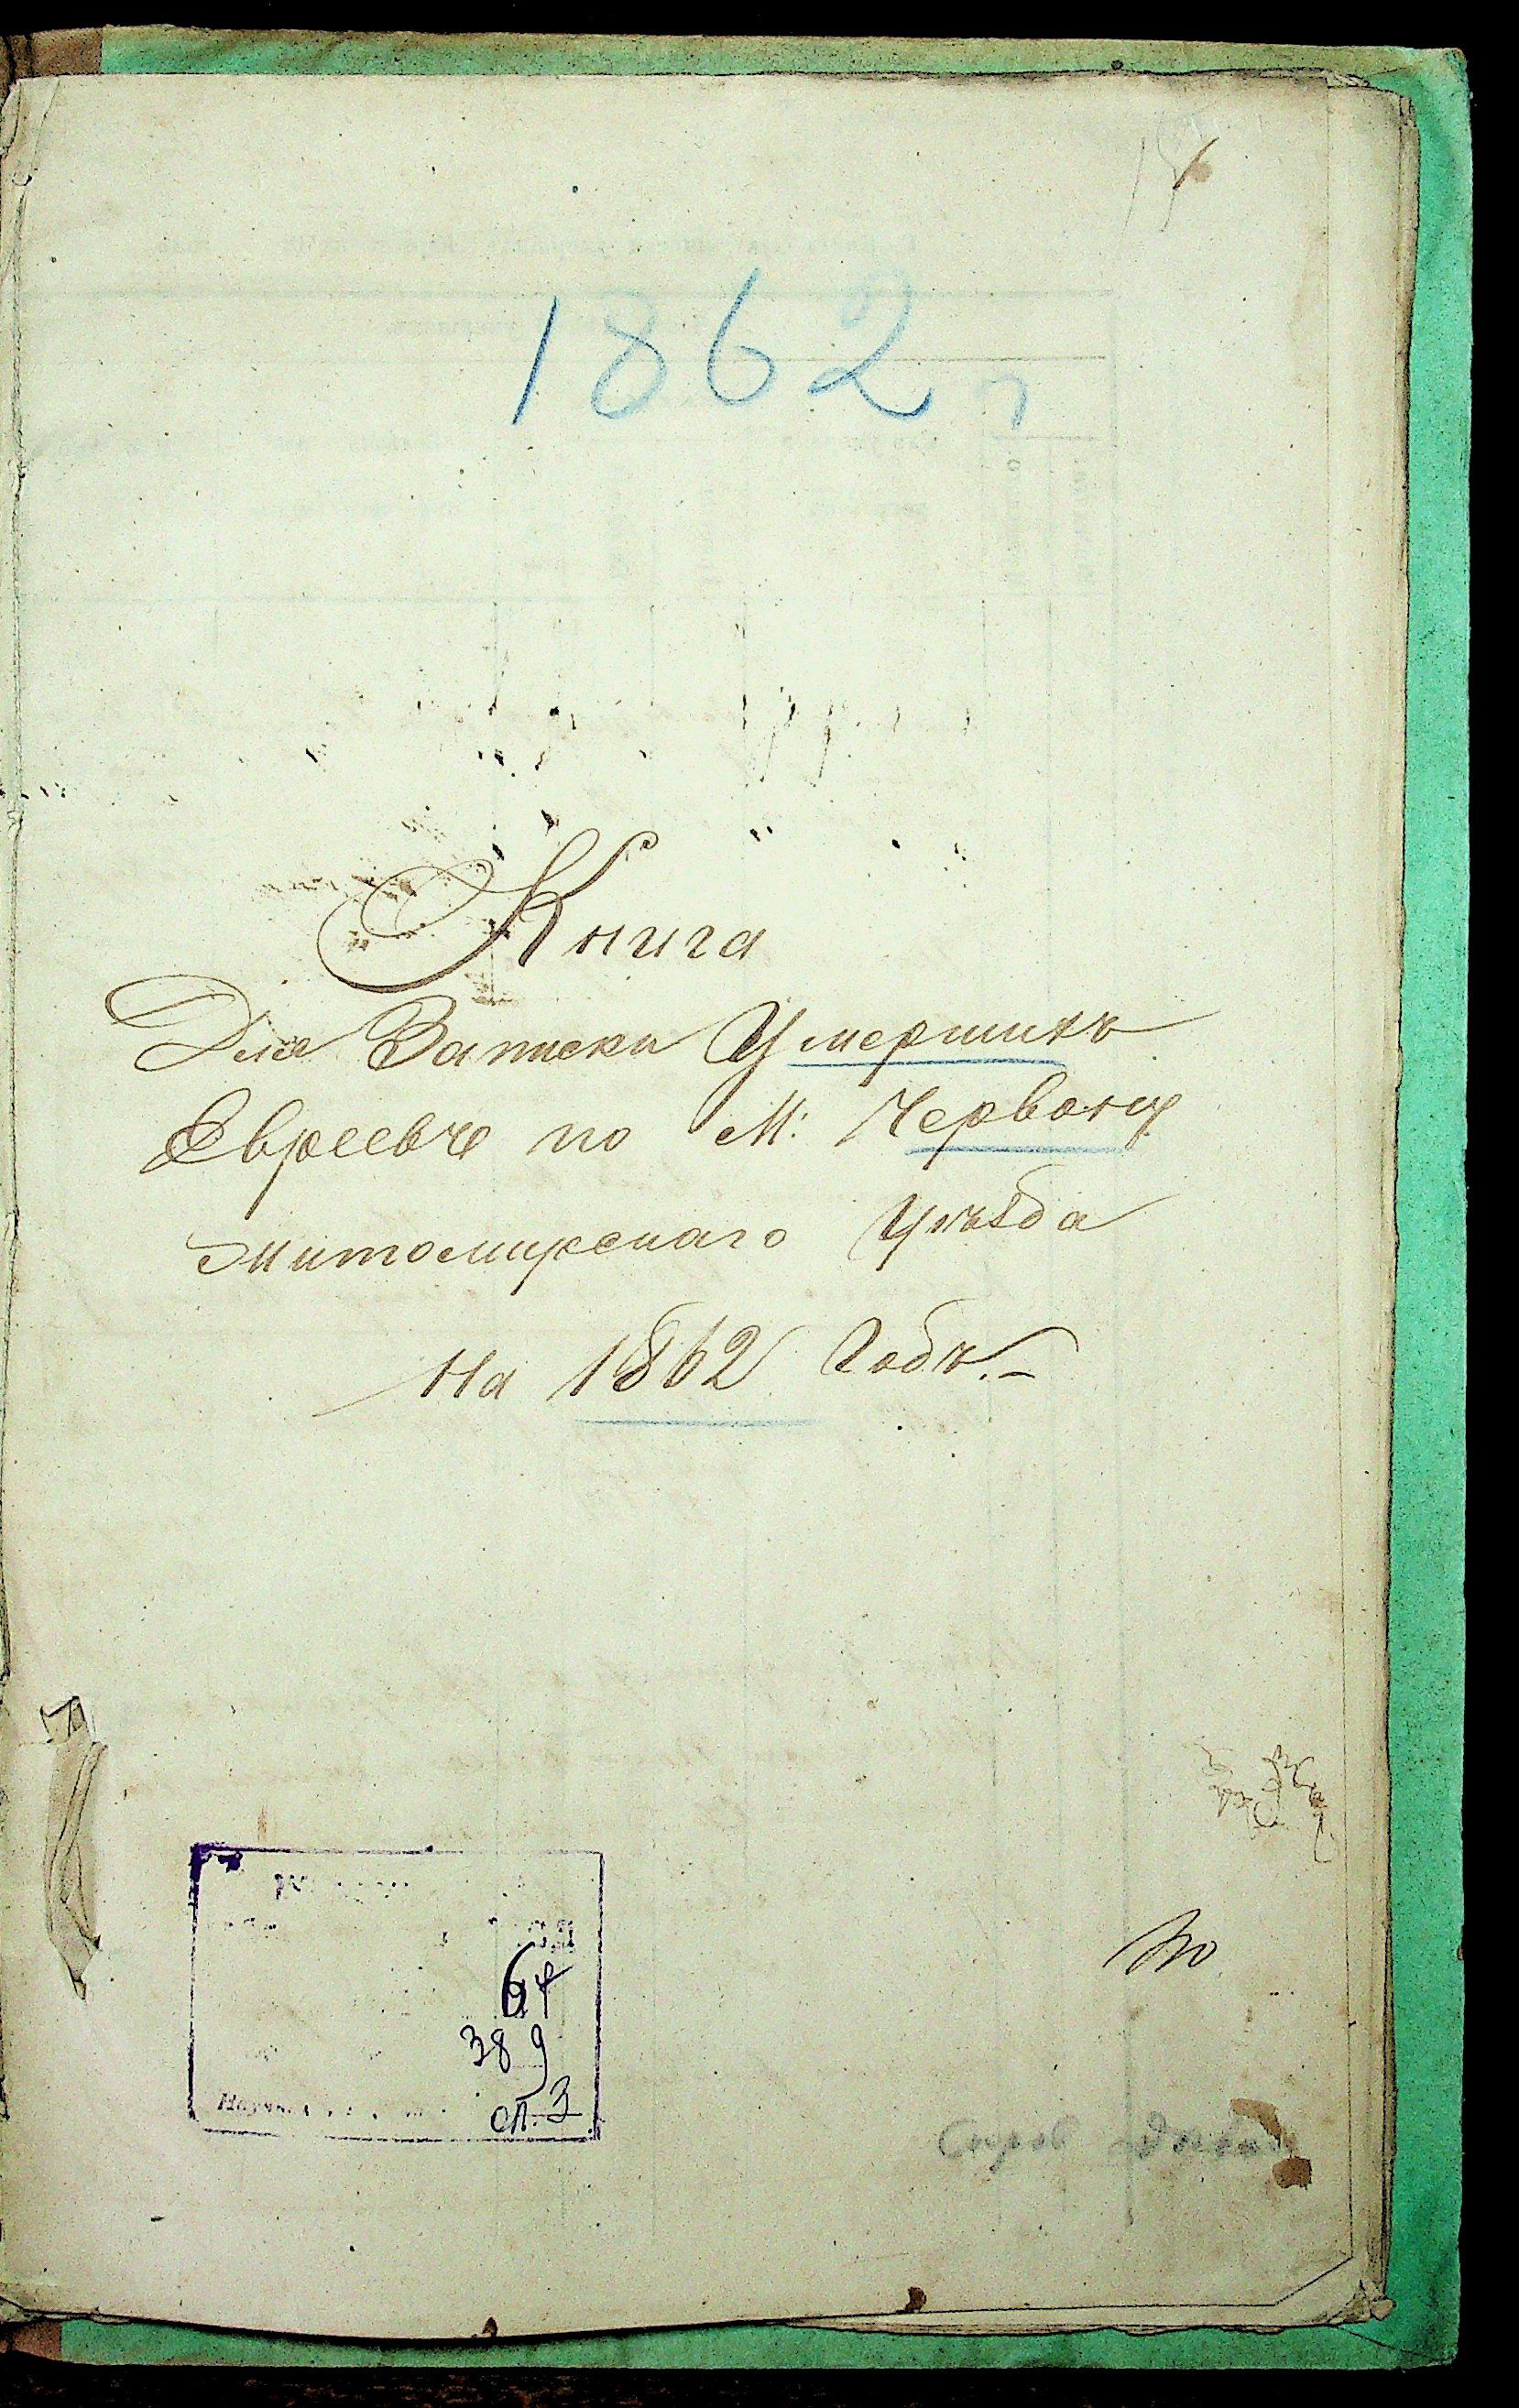 1862 г
Книга
Для Записки Умершихъ
Евреевъ по М: Червону
Житомирскаго Уѣзда
На 1862 Годъ.-
64
389
оп. 3